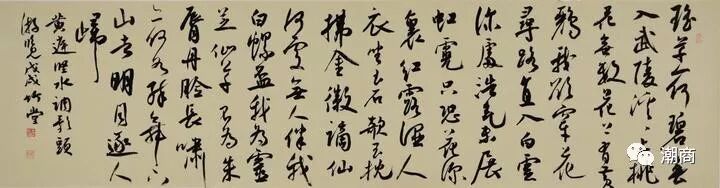 瑶草一何碧春
入武陵溪溪上桃
花无数花上有黄
鹂我欲穿花
寻路直入白云
深处浩气展
虹霓只恐花深
里红露湿人
衣坐玉石欹玉枕
拂金徽谪仙
何处无人伴我
白螺杯我为灵
芝仙草不为朱
唇丹脸长啸
亦何为醉舞下
山去明月逐人
归
黄庭坚水调歌头
游览戊戌竹堂
潮商